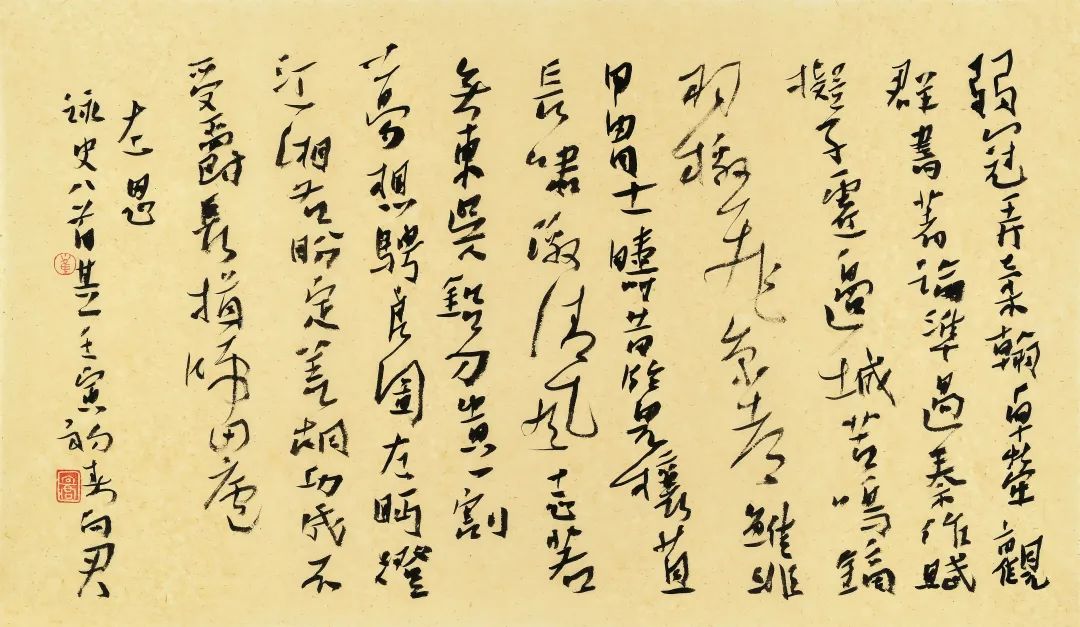 弱冠弄柔翰卓犖觀
群書著論準過秦作賦
擬子虛邊城苦鳴鏑
羽檄飛京都雖非
甲胄士疇昔覽穰苴
長嘯激清風志若
無東吳鉛刀貴一割
夢想騁良圖左眄澄
江湘右盼定羌胡功成不
受爵長揖歸田廬
左思
詠史八首其一壬寅春